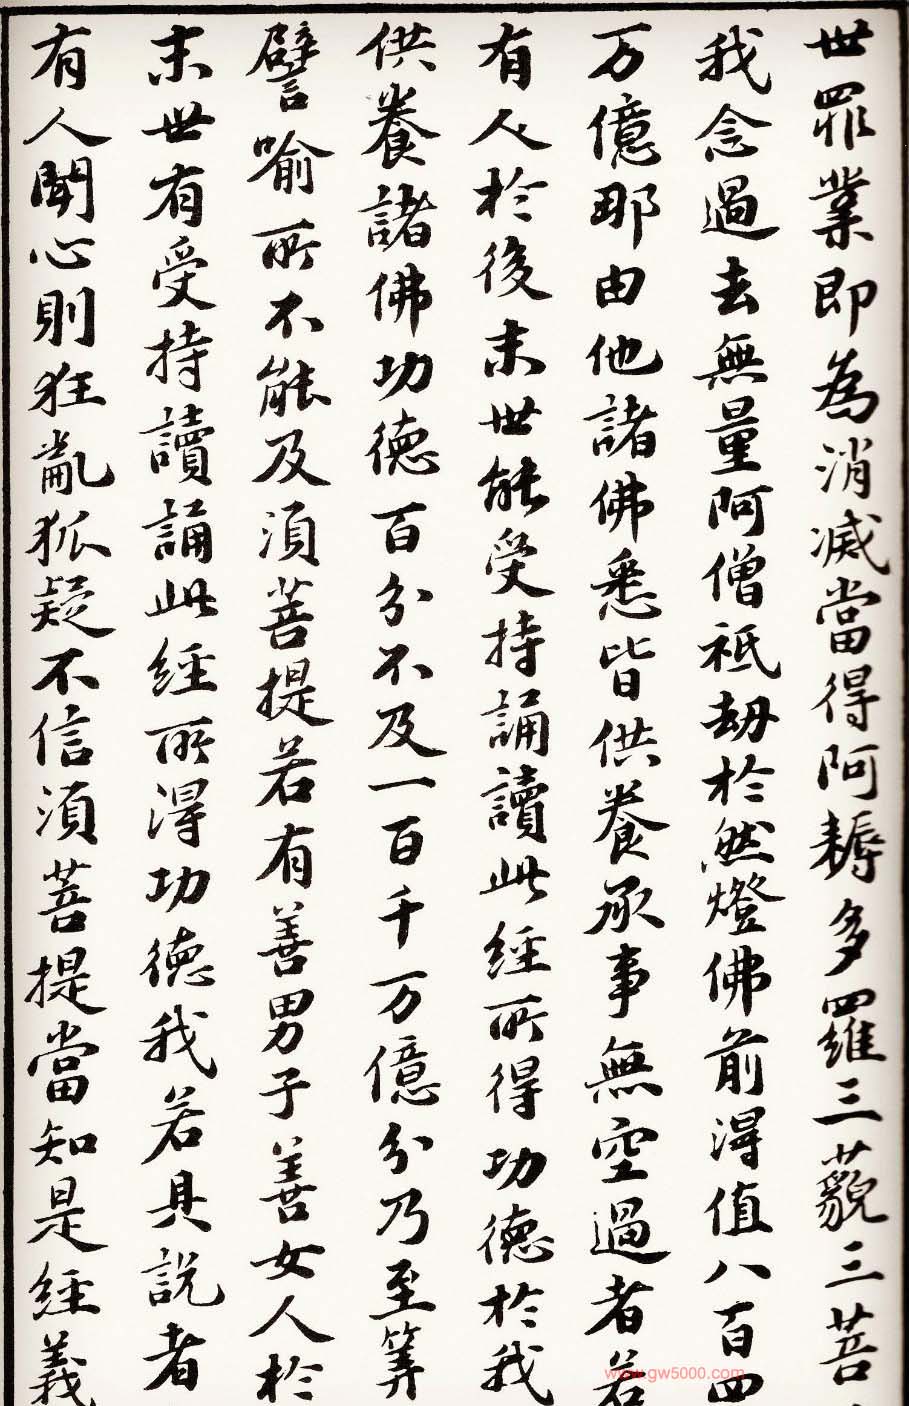 世罪業即為消滅當得阿耨多羅三藐三菩
我念過去無量阿僧祇劫於然燈佛前得值八百四
万億那由他諸佛悉皆供養承事無空過者若
有人於後末世能受持誦讀此經所得功德於我
供養諸佛功德百分不及一百千万億分乃至筭
譬喻所不能及須菩提若有善男子善女人於
末世有受持讀誦此經所得功德我若具說者
有人聞心則狂亂狐疑不信須菩提當知是經義
www.gw5000.com